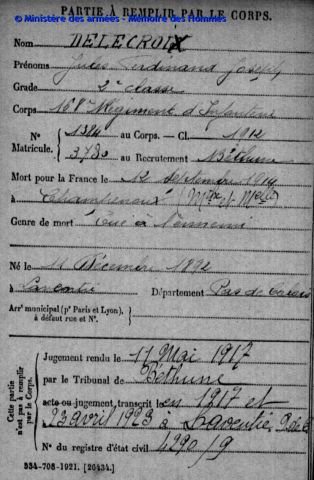 PARTIE À REMPLIR PAR LE CORPS.
© Ministère des armées - Mémoire des Hommes
Nom DELECROIX
Prénoms Jules Ferdinand Joseph
Grade 2e classe
Corps 168e Régiment d'Infanterie
N° 1384 au Corps. — Cl. 1912
Matricule. 3780 au Recrutement Béthune
Mort pour la France le 12 septembre 1914
à Champenoux (Mthe et Mlle)
Genre de mort Tué à l'ennemi
Né le 11 Décembre 1892
à Département Pas de Calais
Arr' municipal (p' Paris et Lyon),
à défaut rue et N°.
Cette partie n'est pas à remplir par le Corps.
Jugement rendu le 11 Mai 1917
par le Tribunal de Béthune
acte ou jugement transcrit le en 1917 et
23 avril 1923 à Laventie, P de C
N° du registre d'état civil 4290/9
534-708-1921. [26434.]